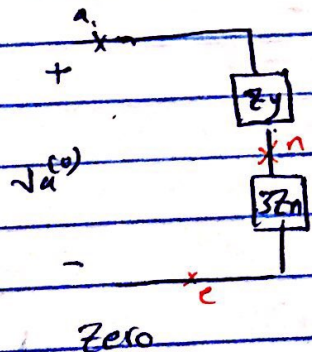 a
+
Zy
n
Va(0)
3Zn
-
e
Zero